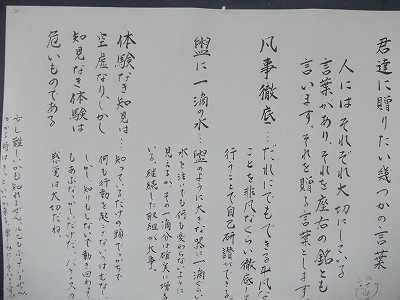 君達に贈りたい幾つかの言葉
人にはそれぞれ大切にしている
言葉があり、それを座右の銘とも
言います。それを贈る言葉とします。
凡事徹底 だれにでもできる平凡な
ことを非凡なくらい徹底し
行うことで自己研讃ができ
盥に一滴の水 盥のように大きな器に一滴ぐらい
水を注ても何も変らないように
見えるが、その一滴分は確実に増え
いる。継続した取組が大事。
体験なき知見は… 知ってるだけの頭でっちで
空虚なり。しかし 何も行動を起こさないではもない
知見なき体験は しかし、知りもしないで動き回るの
危いものである もあぶなかしい
感覚は大切だね。
少し難しいかも知れません